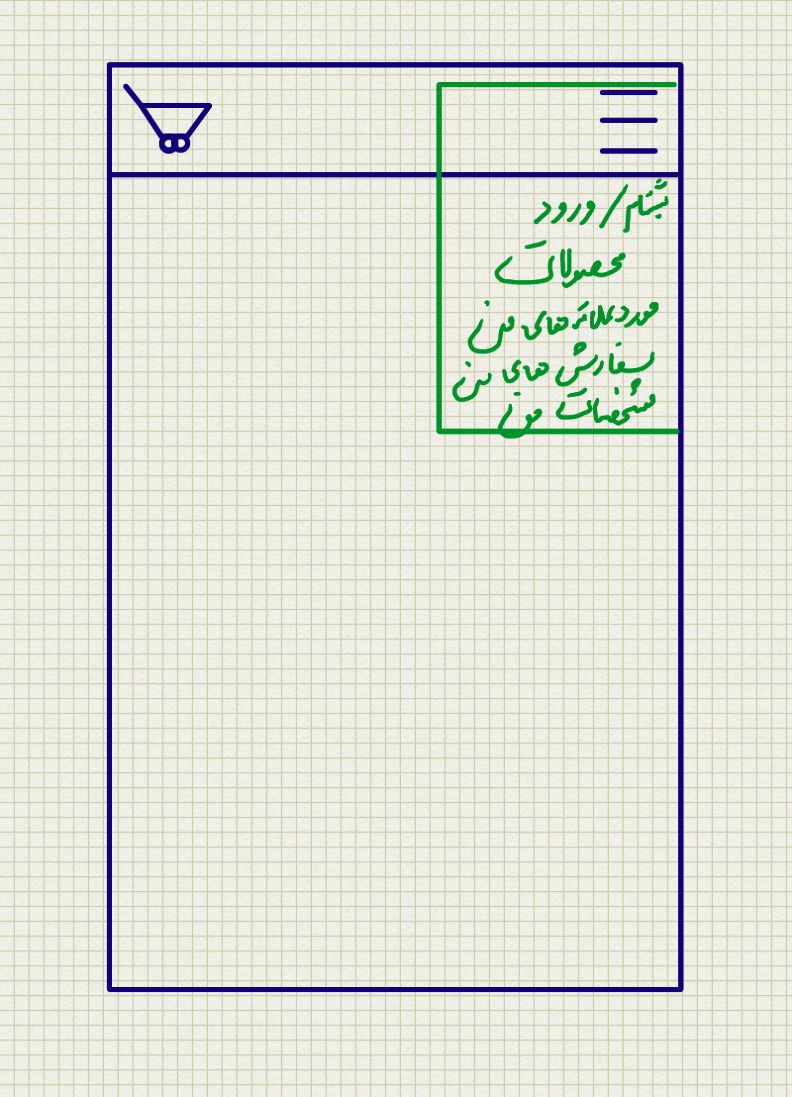 ثبتنام/ورود
محصولات
موردعلاقه های من
سفارش های من
مشخصات من